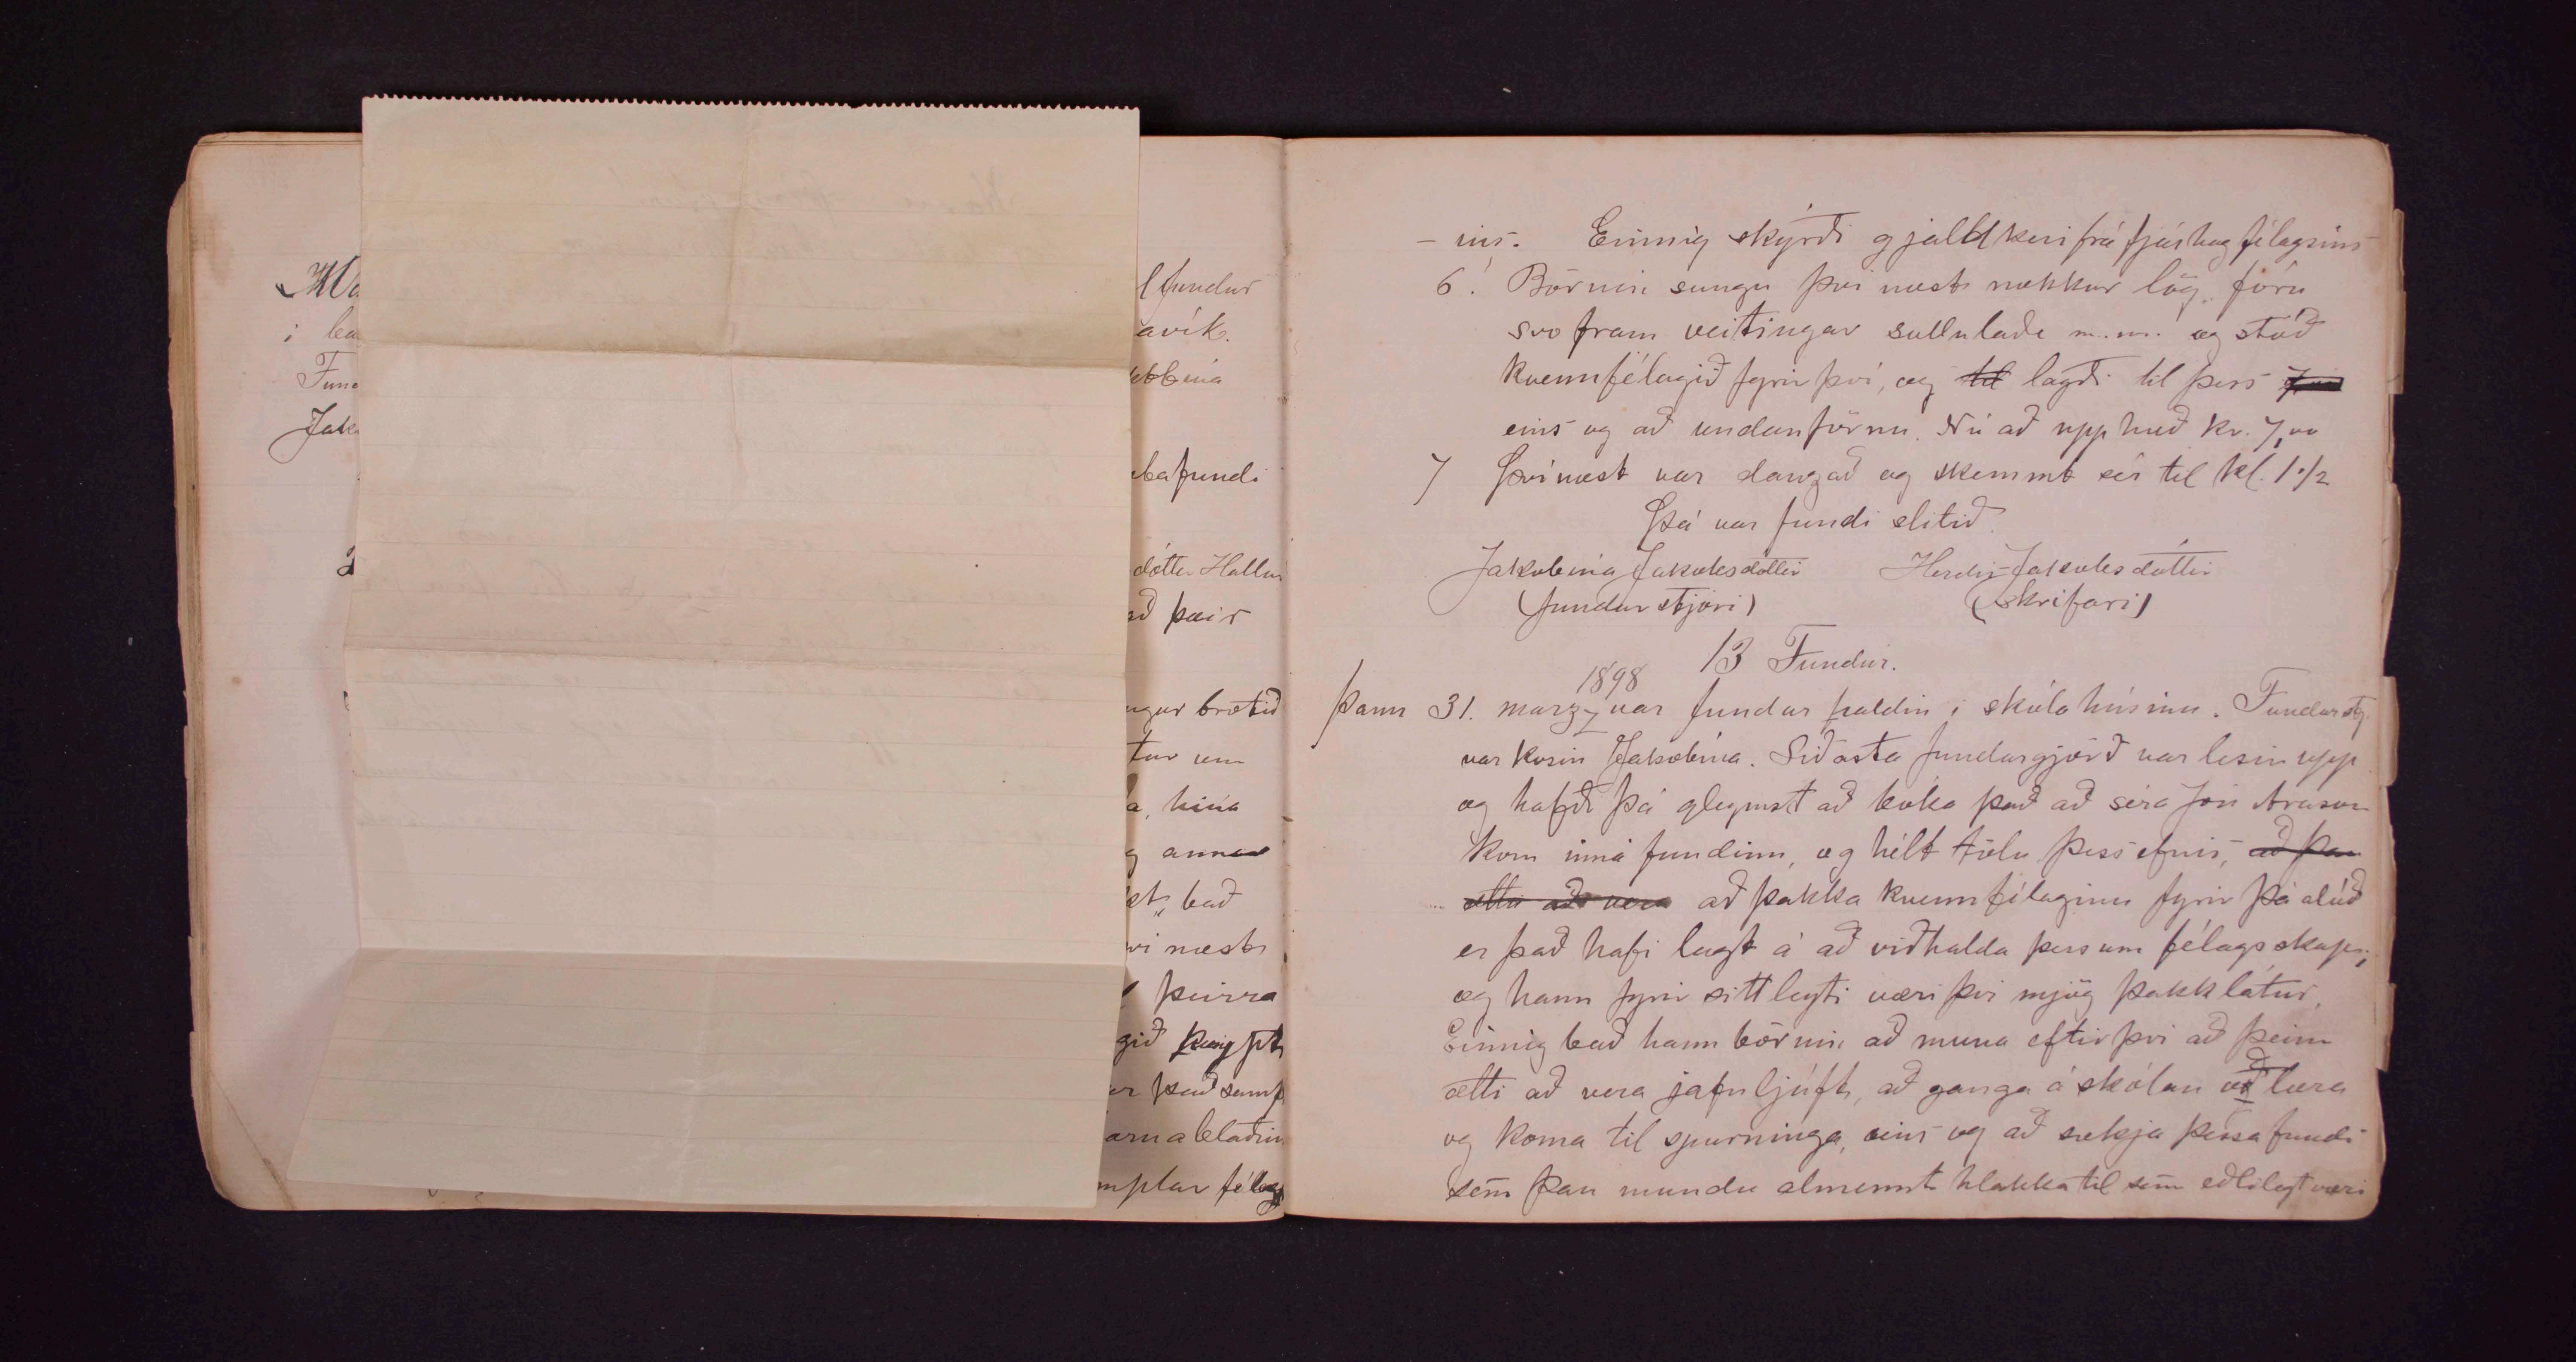 Fun
Jak
l fundur
avík.
bbína
bafundi
dóttir Hallur
þeir
ngar brotið
tur um
a, hina
bað
ví næst
þeirra
gið
arnablaðin
mplar félag
- ins. Einnig skýrði gjaldkeri frá fjárhag félagsins
6. Börnin sungu því næst nokkur lög. fóru
svo fram veitingar sullulaðe m.m. og stóð
kvennfélagið fyrir því, og til lagði til þess
eins og að undanförnu. Nú að upphæð kr. 7,00
7 Þvínæst var danzað og skemmt sér til kl. 1 1/2
Þá var fundi slitið.
Jakobína Jakobsdóttir Herdís Jakobsdóttir
(fundarstjóri) (skrifari)
13 Fundur.
1898
Þann 31. marz var fundur haldin í skólahúsinu. Fundarstj.
var kosin Jakobína. Síðasta fundargjörð var lesin upp
og hafði þá gleymst að bóka það að séra Jón Arason
kom inná fundinn, og hélt tölu þess efnis, að þau
ættu að vera að þakka kvennfélaginu fyrir þá alúð
er það hafi lagt á að viðhalda þessum félagsskap;
og hann fyrir sitt leyti væri því mjög þakklátur.
Einnig bað hann börnin að muna eftir því að þeim
ætti að vera jafnljúft, að ganga á skólan að læra
og koma til spurninga, eins og að sækja þessa fundi
sem þau mundu almennt hlakka til sem eðlilegt væri